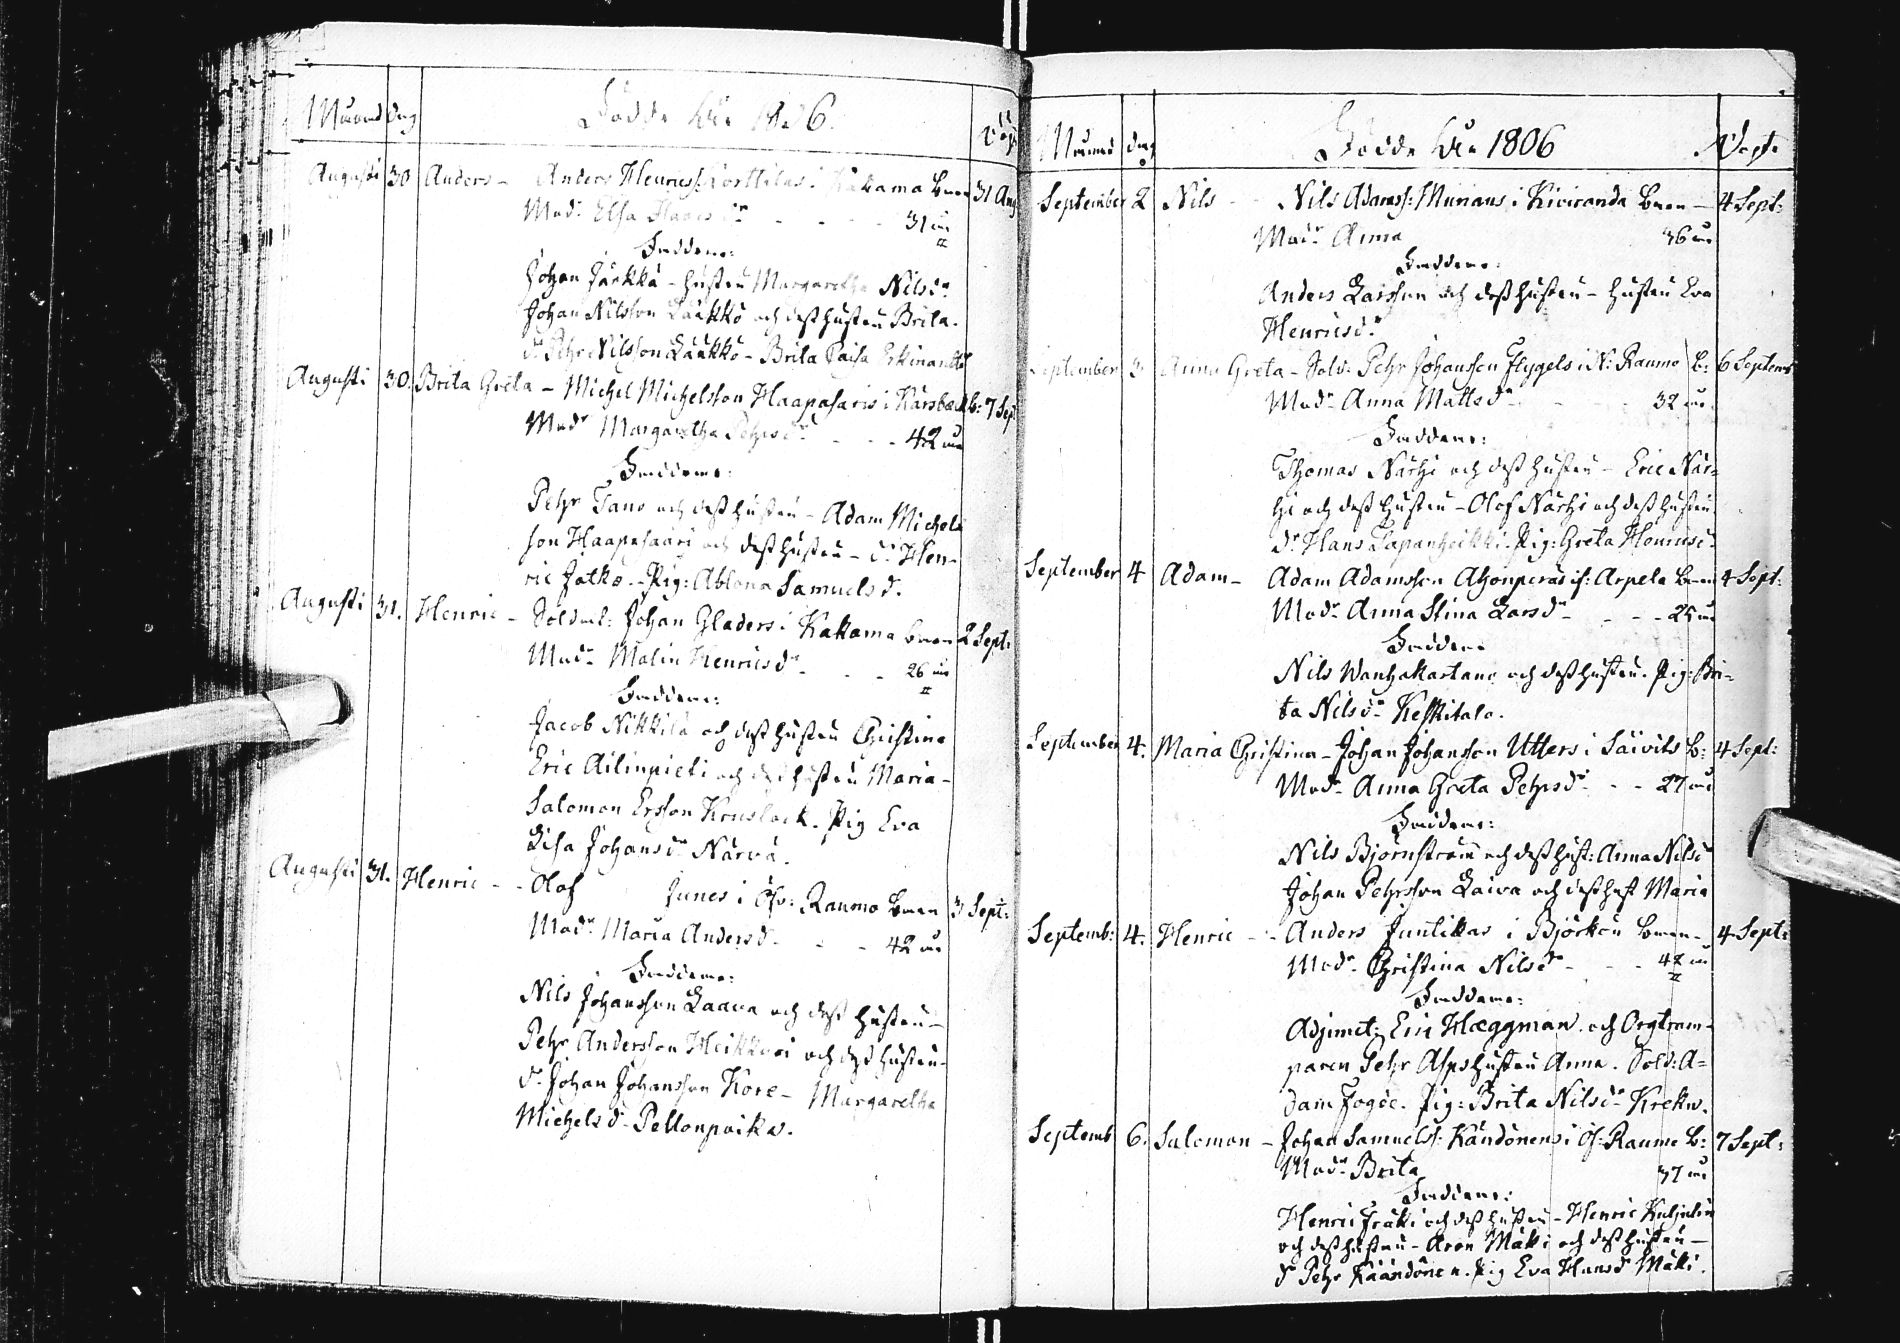 Månad dag Födde Åhr 1806. Döp
Augusti 30 Anders - Anders Henricss: Korttilas i Kakama barn 31 Aug
Mod:r Elsa Hansd:r - - - 31 år
Faddrar:
Johan Järkkä - hustru Margaretha Nilsd:r
Johan Nilsson Laukko och dess hustru Brita.
d:r Pehr Nilsson Laukko - Brita Caisa
Augusti 30. Brita Greta - Michel Michelsson Haapasaris i Karsbäck b: 7 Sep
Mod:r Margaretha Pehrsd:r - - - 42 år
Faddrar:
Pehr Tano och dess hustru - Adam Michels
son Haapasaari och dess hustru - d:r Hen-
ric Jatko. - Pig: Ablona Samuelsd.
Augusti 31. Henric - Soldat: Johan Gladers i Kakama barn 2 Sept:
Mod:r Malin Henricsd:r - - - 26 år
Faddrar:
Jacob Nikkilä och dess hustru Christina
Eric Ailinpieti och dess hustru Maria -
Salomon Ersson Knuslack. Pig Eva
Lisa Johansd:r Närvä.
Augusti 31. Henric - - Olof Junes i Öfv: Raumo barn 3 Sept:
Mod:r Maria Andersd:r - - - 42 år
Faddrar:
Nils Johansson Laava och dess hustru -
Pehr Andersson Heikkari och dess hustru -
d:r Johan Johansson Kore - Margaretha
Michelsd:r Peltonpoika.
Månad dag Födde Åhr 1806 Döpt.
September 2 Nils - - Nils Adamss: Murians i Kiviranda barn - 4 Sept:
Mod:r Anna 36 år
Faddrar:
Anders Larsson och dess hustru - hustru Eva
Henricsd:r
September 3. Anna Greta - Sold: Pehr Johansson Flygels i N: Raumo b: 6 Septemb
Mod:r Anna Mattsd:r - - - 32 år.
Faddrar:
Thomas Närhi och dess hustru - Eric När-
hi och dess hustru - Olof Närhi och dess hustru
d:r Hans Tapanheikki. Pig: Greta Henricsd:
September 4 Adam - Adam Adamsson Ahonperäs i: Arpela barn 4 Sept:
Mod:r Anna Stina Larsd:r - - - 25 år
Faddrar
Nils Wanhakartano och dess hustru. Pig: Bri-
ta Nilsd:r Keskitalo.
September 4. Maria Christina - Johan Johansson Utters i Säivits b: 4 Sept:
Mod:r Anna Greta Pehrsd:r - - 27 år
Faddrar:
Nils Björnström och dess hust: Anna Nilsd
Johan Pehrsson Laiva och dess hust Maria
Septemb: 4. Henric - - Anders Juntikkas i Björkön barn - 4 Sept:
Mod:r Christina Nilsd:r - - - 42 år
Faddrar:
Adjunct: Eric Hæggman och Orgtram-
paren Pehr Asps hustru Anna. Sold: A-
dam Fogde. Pig: Brita Nilsd:r Kreku.
Septemb 6. Salomon - Johan Samuelss: Kändönens i Öf: Raumo b: 7 Sept:
Mod:r Brita 37 år
Faddrar:
Henric Fräki och dess hustru - Henric
och dess hustru - Aron Mäki och dess hustru -
d:r Pehr Käändönen. Pig Eva Hansd Mäki.